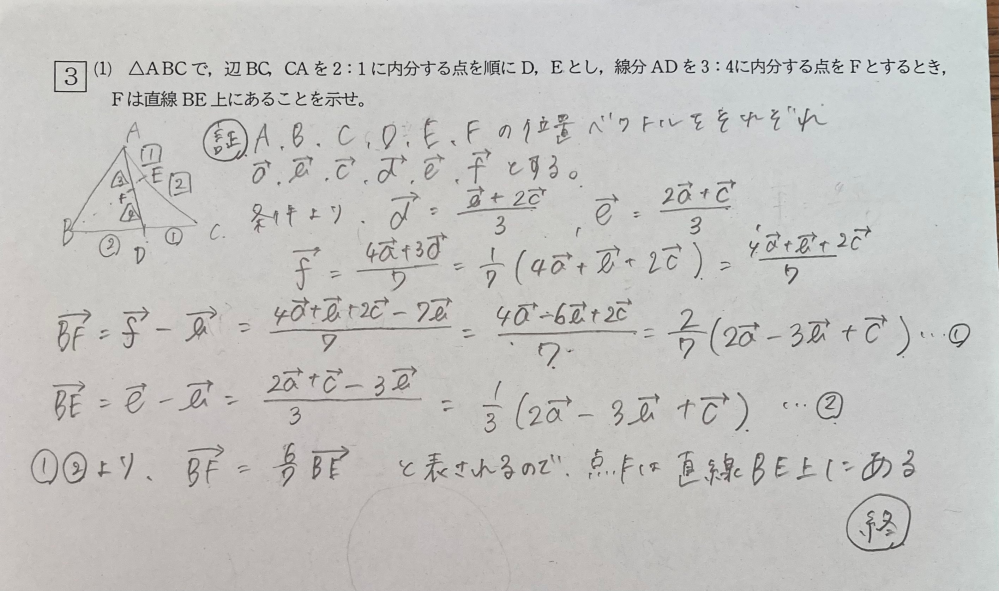 3 (1) △ABCで，辺BC，CAを2：1に内分する点を順にD，Eとし，線分ADを3：4に内分する点をFとするとき，
Fは直線BE上にあることを示せ。
証 A、B、C、D、E、Fの位置ベクトルをそれぞれ
a⃗、b⃗、c⃗、d⃗、e⃗、f⃗とする。
条件より、d⃗ = (b⃗ + 2c⃗)/3 , e⃗ = (2a⃗ + c⃗)/3
f⃗ = (4a⃗ + 3d⃗)/7 = 1/7 (4a⃗ + b⃗ + 2c⃗) = (4a⃗ + b⃗ + 2c⃗)/7
BF⃗ = f⃗ − b⃗ = (4a⃗ + b⃗ + 2c⃗ − 7b⃗)/7 = (4a⃗ − 6b⃗ + 2c⃗)/7 = 2/7 (2a⃗ − 3b⃗ + c⃗) …①
BE⃗ = e⃗ − b⃗ = (2a⃗ + c⃗ − 3b⃗)/3 = 1/3 (2a⃗ − 3b⃗ + c⃗) …②
①②より、BF⃗ = 6/7 BE⃗ と表されるので、点Fは直線BE上にある
終
A
1
E
3
2
F
4
B
C
②
D
①